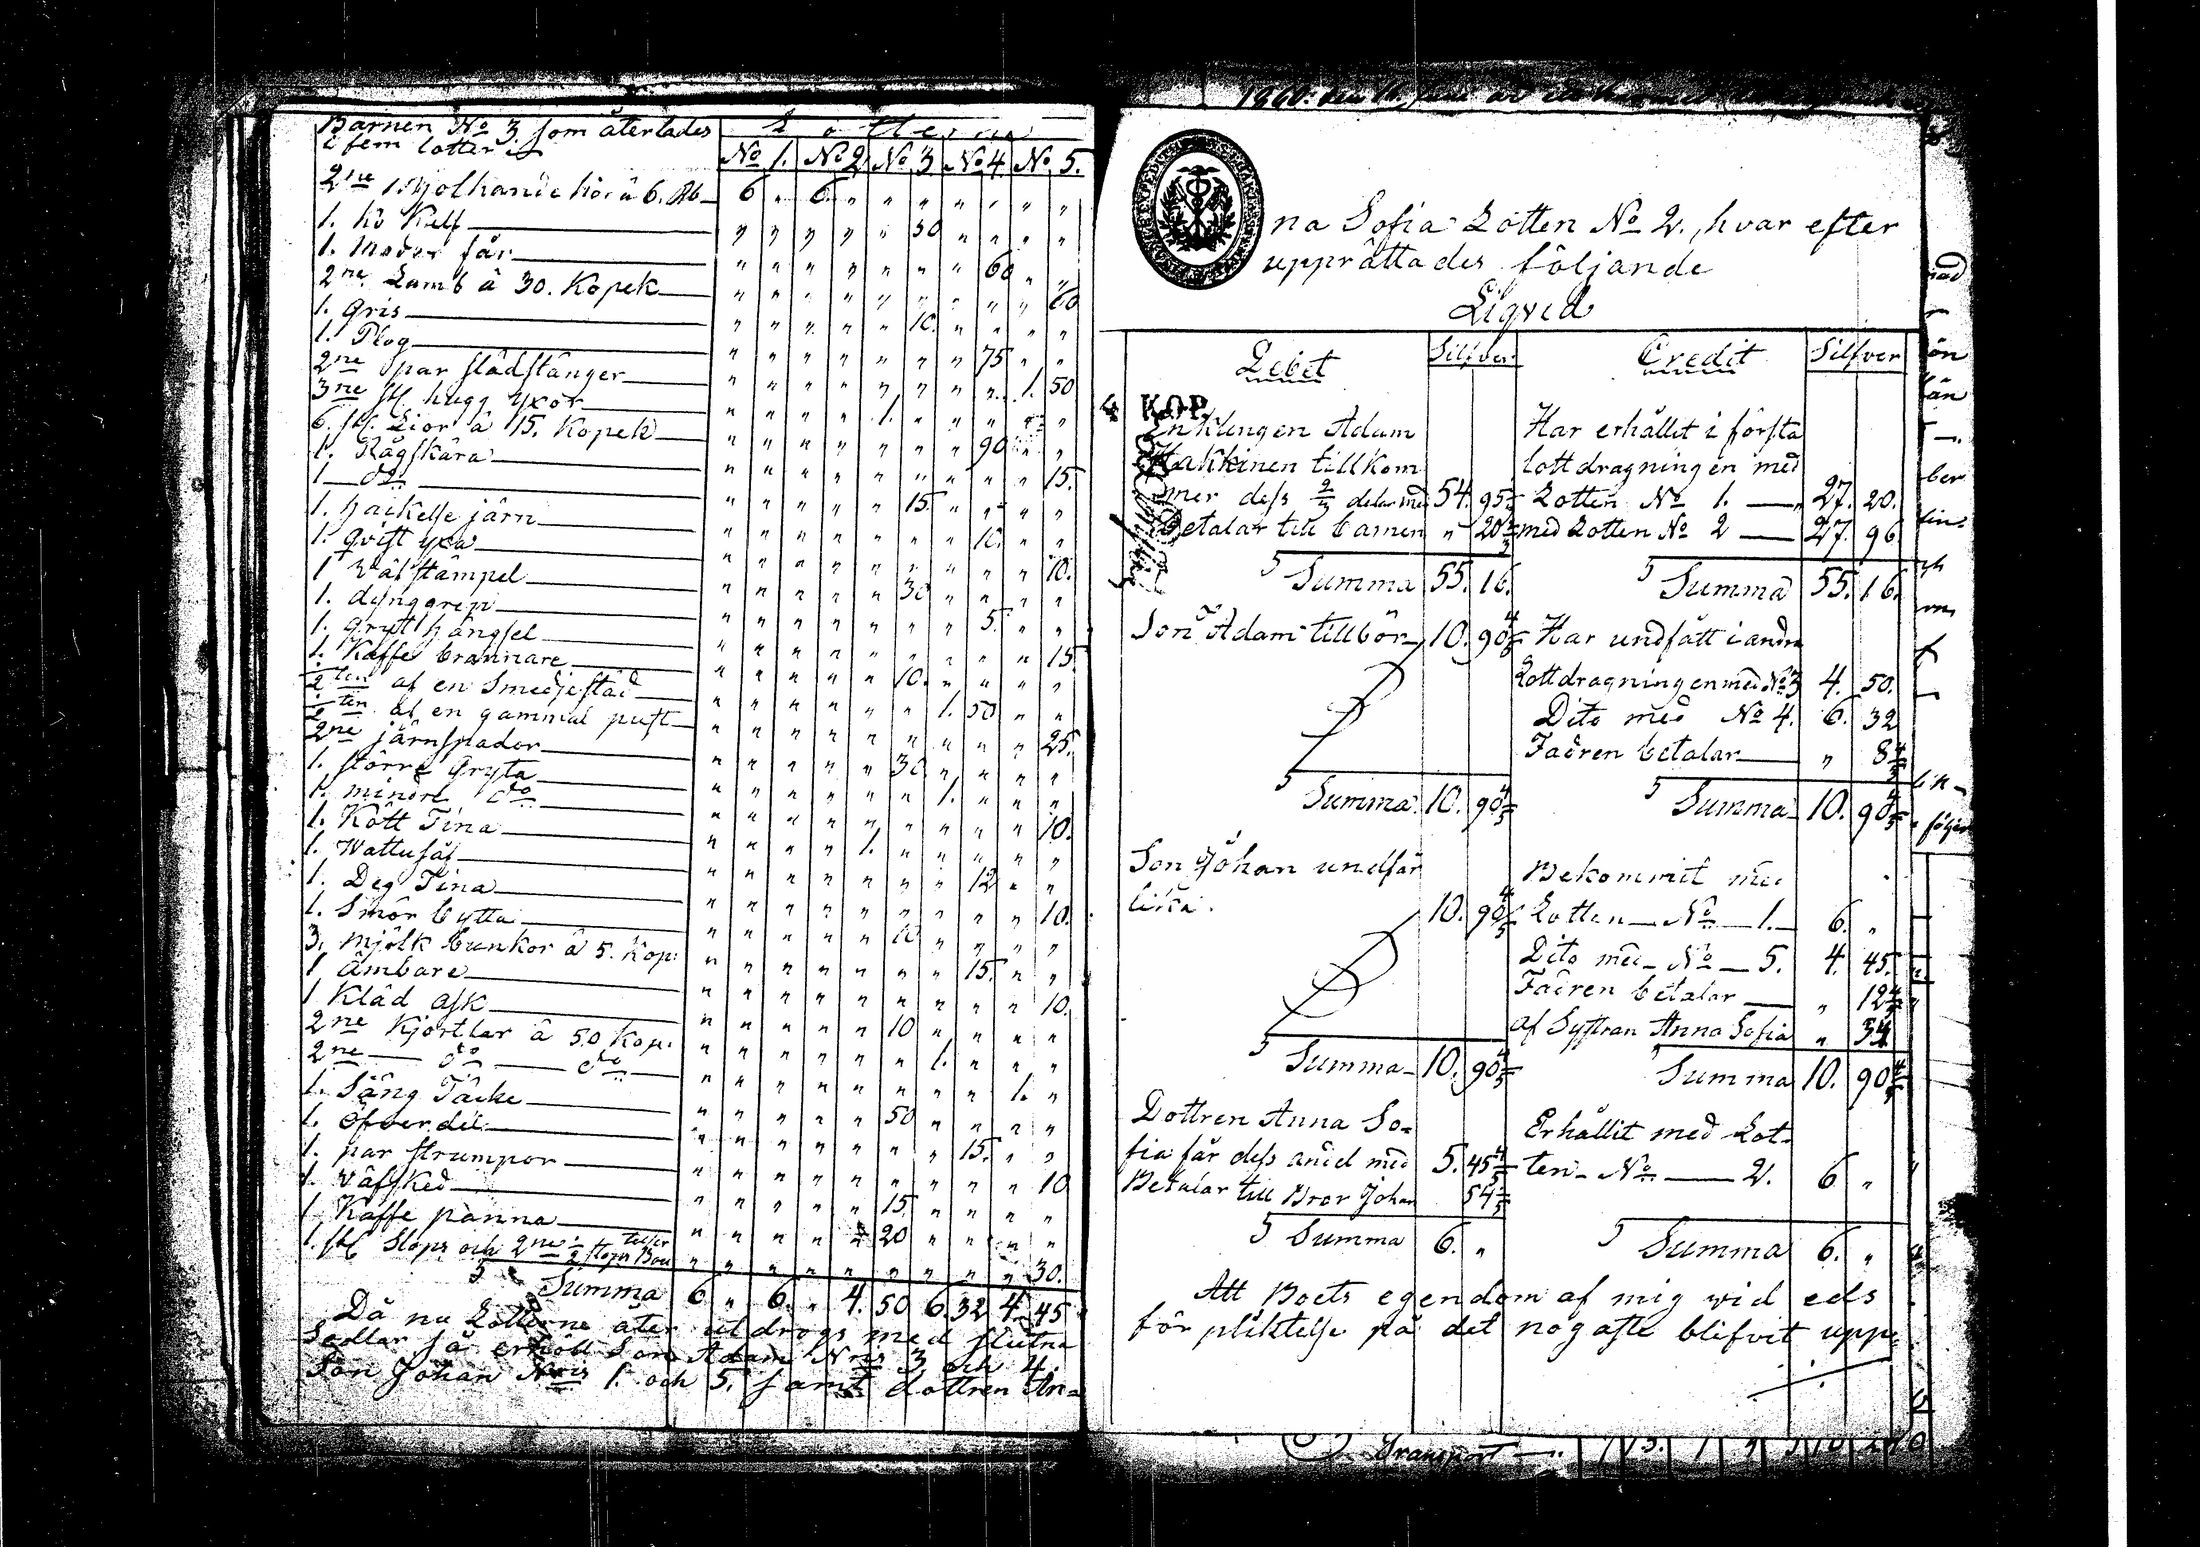 Barnen No 3 som återlades
i fem lotter
Lotterne
No 1. No 2 No 3 No 4 No 5.
2ne Mjölkande kor à 6. Rb 6 " 6 " " " " " " "
1. Ko Kelf " " " " " 50 " " " "
1. Moder får " " " " " " " 60 " "
2ne Lamb à 30. Kopek " " " " " " " " " 60
1. Gris " " " " " 10. " " " "
1. Plog " " " " " " " 75 " "
2ne par slädstänger " " " " " " " " 1. 50
3ne st. hugg yxor " " " " 1. " " " " "
6. st. Lior à 15. Kopek " " " " " " " 90 " "
1. Rågskära " " " " " " " " " 15.
1 do " " " " " 15. " " " "
1. hackelse järn " " " " " " " 10. " "
1. qvist yxa " " " " " " " " " 10.
1 stämpel " " " " " 30 " " " "
1. dynggrep " " " " " " " 5. " "
1. Gryt hängsel " " " " " " " " " 15
1. Kaffe brännare " " " " " 10. " " " "
af en Smedjestäd " " " " " " 1. 50 " "
af en gammal pust " " " " " " " " " 25.
2ne järnspador " " " " " 30 " " " "
1. större Gryta " " " " " " 1. " " "
1. mindre do " " " " " " " " " 10.
1. Kött Tina " " " " 1. " " " " "
1. Wattusåf " " " " " " " 12 " "
1. Deg Tina " " " " " " " " " 10.
1. Smör bytta " " " " " 10 " " " "
3. mjölk bunkor à 5. Kop: " " " " " " " 15. " "
1 ämbare " " " " " " " " " 10.
1 Kläd ask " " " " " 10 " " " "
2ne Kjortlar à 50 Kop. " " " " " " 1. " " "
2ne do do " " " " " " " " 1. "
1. Säng Täcke " " " " " 50 " " " "
1. öfver del " " " " " " " 15. " "
1. par strumpor " " " " " " " " " 10
1. Väfsked " " " " " 15. " " " "
1 Kaffe panna " " " " " 20 " " " "
1. st. Stops och 2ne 1/2 stops " " " " " " " " " 30.
Summa 6 " 6. " 4. 50 6. 32 4. 45
Då nu Lotterne åter utdrogs med slutna
Sedlar så erhöll Son Adam Nris 3 och 4.
Son Johan Nris 1. och 5. samt dottren An-
na Sofia Lotten No 2., hvar efter
upprättades följande
Liqvid
Debet Silfver Credit Silfver
4 KOP.
Enklingen Adam Har erhållit i första
Hakkinen tillkom lottdragningen med
mer dess 2/3 delar med 54. 95 Lotten No 1. 27. 20.
Betalar till barnen " 20 med Lotten No 2 27. 96
Summa 55. 16. Summa 55. 16.
Son Adam tillbör 10. 90 4/5 Har undfått i andra
Lottdragningen med No 3 4. 50.
Dito med No 4. 6. 32
Fadren betalar " 8 4/5
Summa 10. 90 4/5 Summa 10. 90 4/5
Son Johan undfår Bekommit med
lika. 10. 90 4/5 Lotten No 1. 6. "
Dito med No 5. 4. 45.
Fadren betalar " 12
af Systran Anna Sofia "
Summa 10. 90 4/5 Summa 10. 90 4/5
Dottren Anna So- Erhållit med Lot-
fia får dess andel med 5. 45 ten No 2. 6 "
Betalar till Bror Johan 54
Summa 6. " Summa 6. "
Att Boets egendom af mig vid eds
förpliktelse på det nogaste blifvit uppe-
Transport